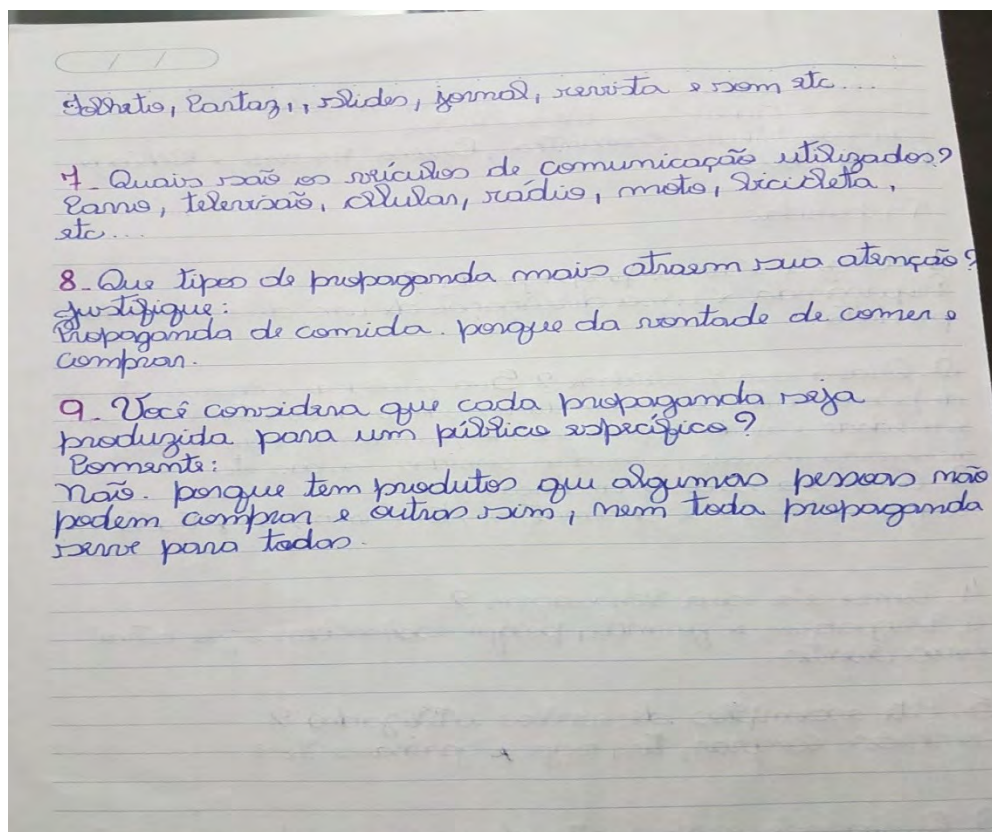 / /
folheto, Cartaz,, slides, jornal, revista e som etc...
7- Quais são os veículos de comunicação utilizados?
Carro, televisão, celular, rádio, moto, bicicleta,
etc...
8- Que tipos de propaganda mais atraem sua atenção?
Justifique:
Propaganda de comida. porque da vontade de comer e
comprar.
9- Você considera que cada propaganda seja
produzida para um público específico?
Comente:
não. porque tem produtos que algumas pessoas não
podem comprar e outras sim, nem toda propaganda
serve para todos.